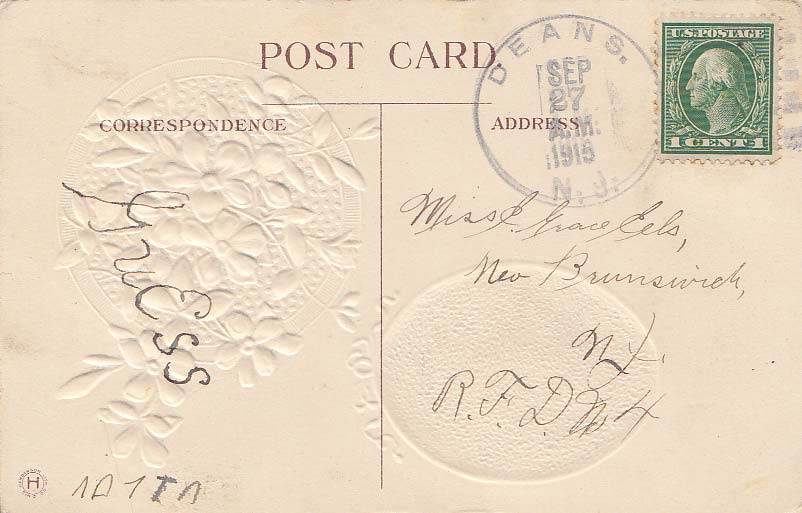 POST CARD.
CORRESPONDENCE
guess
H
ADDRESS
DEANS.
SEP
27
A.M.
1915
N. J.
U.S. POSTAGE
1 CENT 1
Miss E. Grace Eels,
New Brunswick,
N.J.
R.F.D. No 4